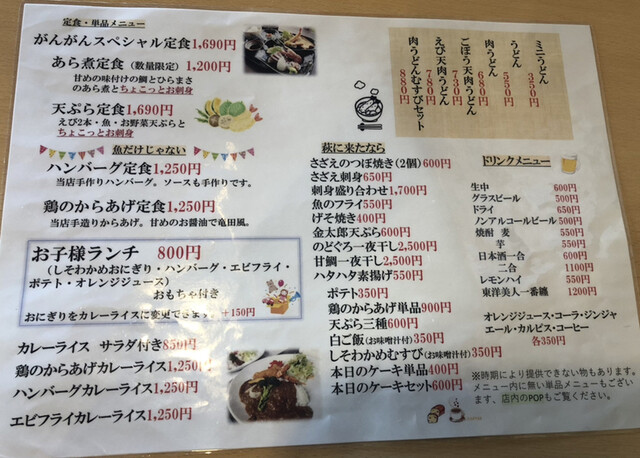 定食・単品メニュー
がんがんスペシャル定食1,690円
あら煮定食(数量限定)1,200円
甘めの味付けの鯛とひらまさ
のあら煮とちょこっとお刺身
天ぷら定食1,690円
えび2本・魚・お野菜天ぷらと
ちょこっとお刺身
魚だけじゃない
ハンバーグ定食1,250円
当店手作りハンバーグ。ソースも手作りです。
鶏のからあげ定食1,250円
当店手造りからあげ。甘めのお醤油で竜田風。
お子様ランチ 800円
(しそわかめおにぎり・ハンバーグ・エビフライ・
ポテト・オレンジジュース)
おもちゃ付き
おにぎりをカレーライスに変更できます。+150円
カレーライス サラダ付き850円
鶏のからあげカレーライス1,250円
ハンバーグカレーライス1,250円
エビフライカレーライス1,250円
ミニうどん 350円
うどん 550円
肉うどん 680円
ごぼう天肉うどん 730円
えび天肉うどん 780円
肉うどんむすびセット 880円
萩に来たなら
さざえのつぼ焼き(2個)600円
さざえ刺身650円
刺身盛り合わせ1,700円
魚のフライ550円
げそ焼き400円
金太郎天ぷら600円
のどぐろ一夜干し2,500円
甘鯛一夜干し2,500円
ハタハタ素揚げ550円
ポテト350円
鶏のからあげ単品900円
天ぷら三種600円
白ご飯(お味噌汁付)350円
しそわかめむすび(お味噌汁付)350円
本日のケーキ単品400円
本日のケーキセット600円
ドリンクメニュー
生中 600円
グラスビール 500円
ドライ 650円
ノンアルコールビール 500円
焼酎 麦 550円
芋 550円
日本酒一合 600円
二合 1100円
レモンハイ 550円
東洋美人一番纏 1200円
オレンジジュース・コーラ・ジンジャ
エール・カルピス・コーヒー
各350円
※時期により提供できない物もあります。
メニュー内に無い単品メニューもござい
ます、店内のPOPもご覧ください。